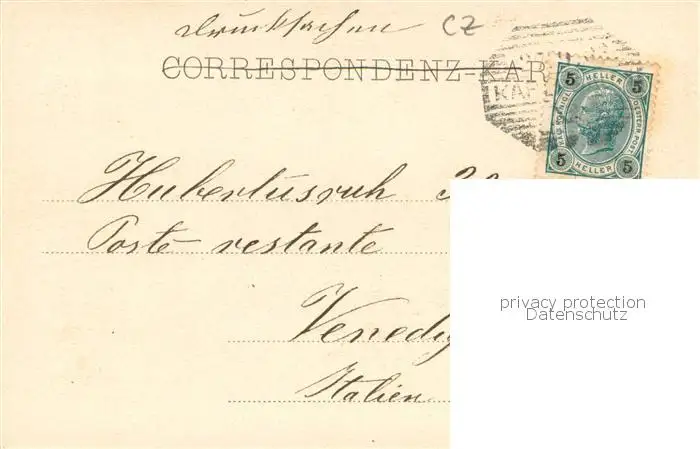 Drucksachen CZ
CORRESPONDENZ-KAR
KAR
5 HELLER 5
KAIS. KOENIGL. OESTERR. POST.
5 HELLER 5
Hubertusruh
Poste restante
Venedig
Italien
privacy protection
Datenschutz